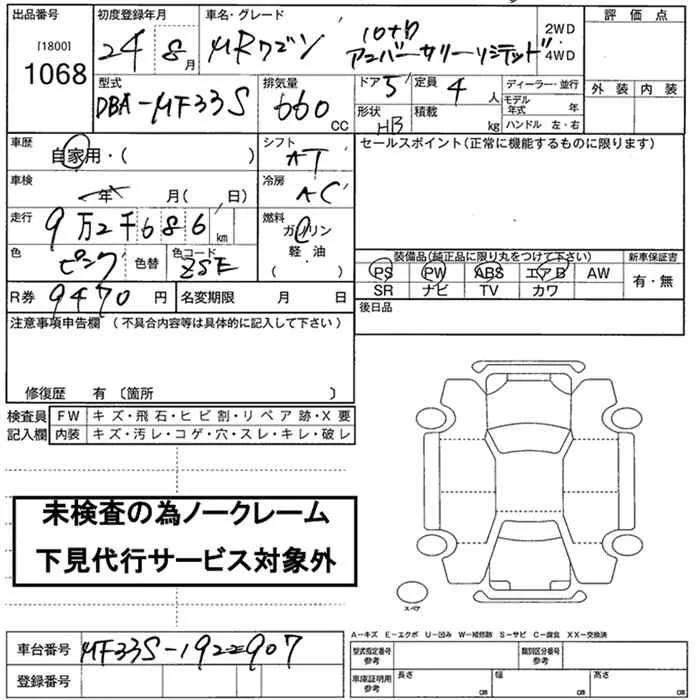 出品番号
[1800]
1068
初度登録年月
24 8月
車名・グレード
MRワゴン 10thアニバーサリーリミテッド
2WD
・
4WD
評価点
外装 内装
型式
DBA-MF33S
排気量
660 CC
ドア 5 定員 4 人
形状 HB 積載 kg
ディーラー・並行
モデル年式 年
ハンドル 左・右
車歴
自家用・( )
シフト
AT
セールスポイント(正常に機能するものに限ります)
車検
年 月( 日)
冷房
AC
走行
9万2千686 km
燃料
ガソリン
軽・油
( )
色
ピンク
色替
色コード
ZSE
装備品(純正品に限り丸をつけて下さい)
PS PW ABS エアB AW
SR ナビ TV カワ
新車保証書
有・無
R券 9470 円
名変期限 月 日
後日品
注意事項申告欄(不具合内容等は具体的に記入して下さい)
修復歴 有〔箇所 〕
検査員記入欄
FW キズ・飛石・ヒビ割・リペア跡・X要
内装 キズ・汚レ・コゲ・穴・スレ・キレ・破レ
未検査の為ノークレーム
下見代行サービス対象外
スペア
A-キズ E-エクボ U-凹み W-補修跡 S-サビ C-腐食 XX-交換済
車台番号
MF33S-192907
登録番号
型式指定番号
参考
類別区分番号
参考
車庫証明用
参考
長さ cm
幅 cm
高さ cm